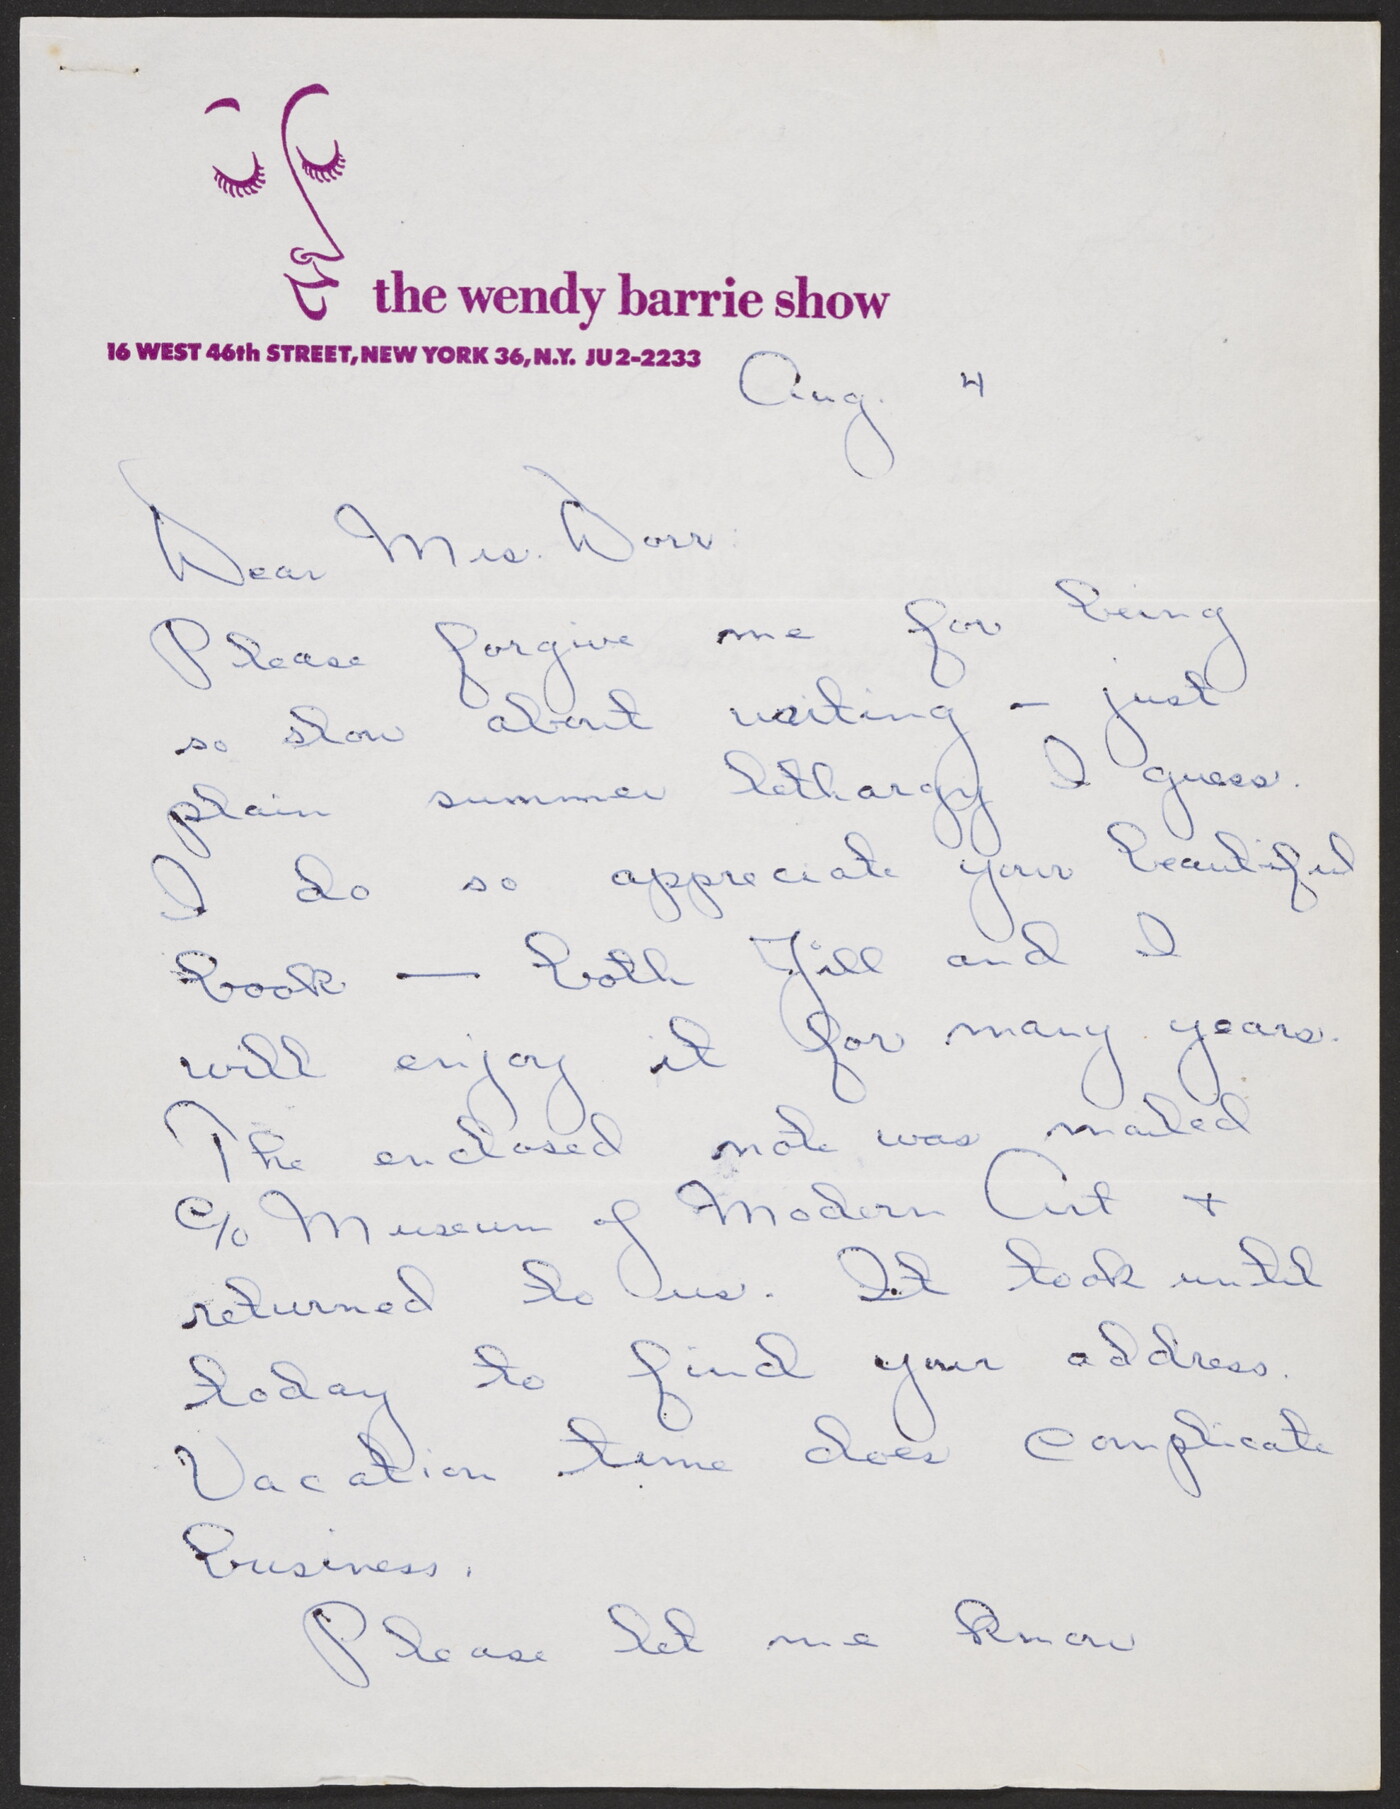 the wendy barrie show
16 WEST 46th STREET, NEW YORK 36, N.Y. JU 2-2233
Aug. 4
Dear Mrs. Dorr:
Please forgive me for being
so slow about writing - just
plain summer lethargy I guess.
I do so appreciate your beautiful
book — both Jill and I
will enjoy it for many years.
The enclosed note was mailed
c/o Museum of Modern Art +
returned to us. It took until
today to find your address.
Vacation time does complicate
business.
Please let me know